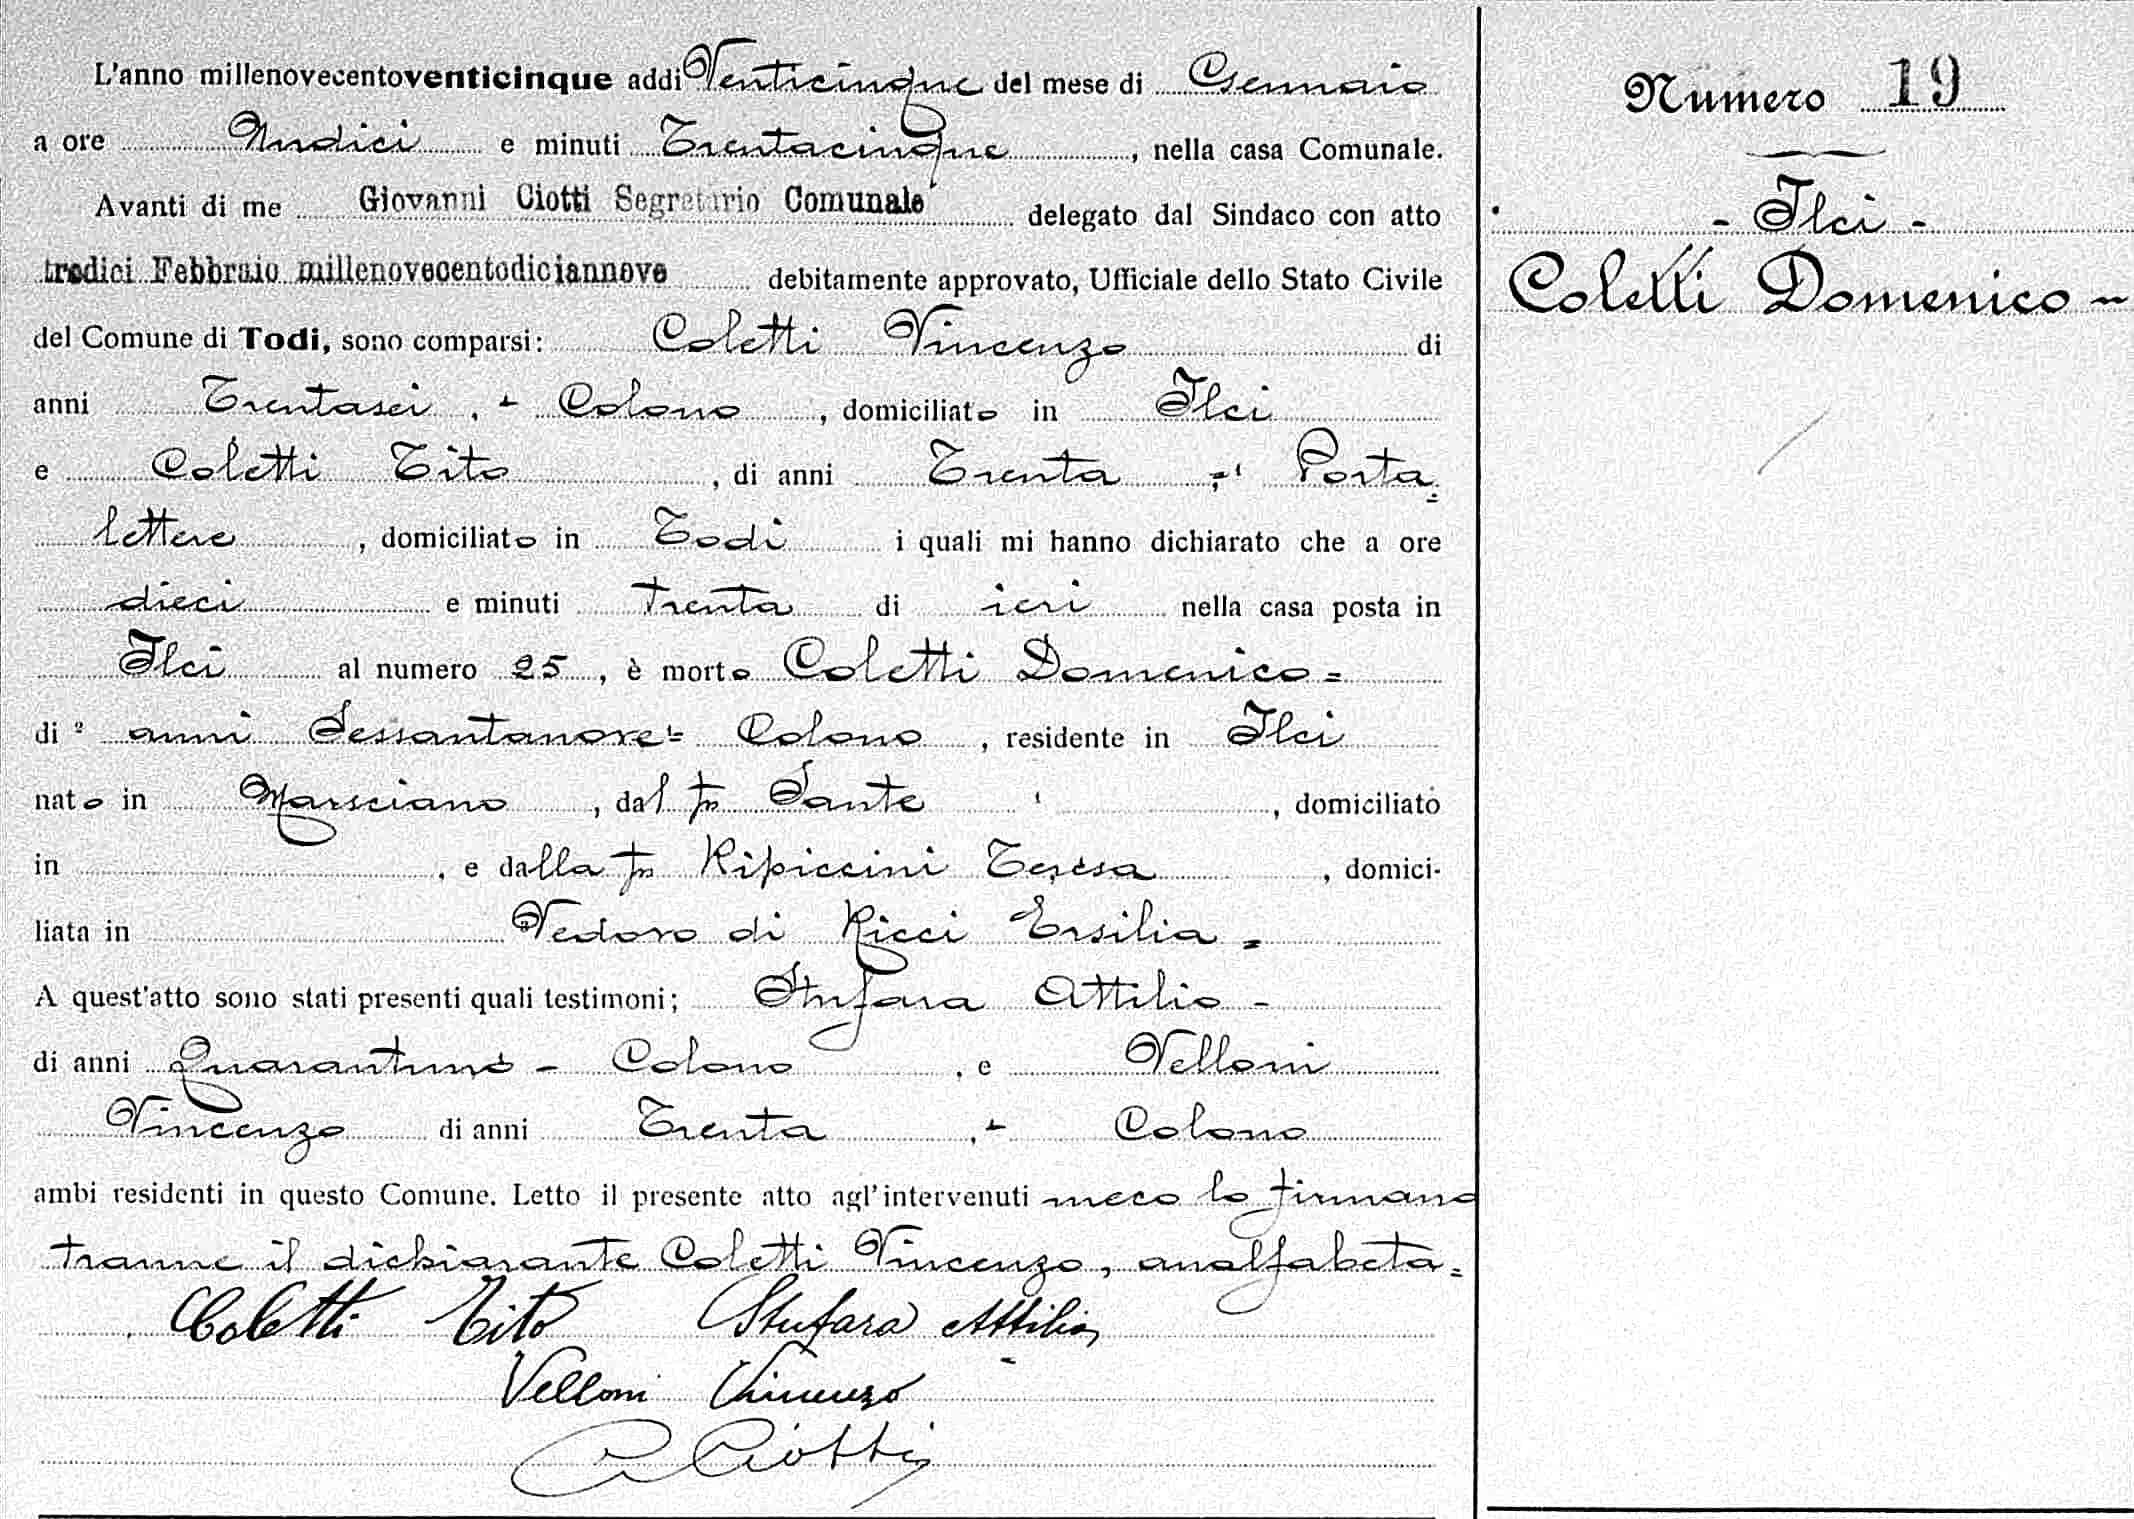 L'anno millenovecentoventicinque addi Venticinque del mese di Gennaio
a ore Undici e minuti Trentacinque, nella casa Comunale.
Avanti di me Giovanni Ciotti Segretario Comunale delegato dal Sindaco con atto
tredici Febbraio millenovecentodiciannove debitamente approvato, Ufficiale dello Stato Civile
del Comune di Todi, sono comparsi: Coletti Vincenzo di
anni Trentasei, - Colono, domiciliato in Ilci
e Coletti Tito, di anni Trenta, Porta=
lettere, domiciliato in Todi i quali mi hanno dichiarato che a ore
dieci e minuti trenta di ieri nella casa posta in
Ilci al numero 25, è morto Coletti Domenico=
di ² anni Sessantanove= Colono, residente in Ilci
nato in Marsciano, dal fu Sante, domiciliato
in , e dalla fu Ripiccini Teresa, domici-
liata in Vedovo di Ricci Ersilia.=
A quest'atto sono stati presenti quali testimoni; Stufara Attilio -
di anni Quarantuno - Colono, e Velloni
Vincenzo di anni Trenta, - Colono
ambi residenti in questo Comune. Letto il presente atto agl'intervenuti meco lo firmano
tranne il dichiarante Coletti Vincenzo, analfabeta.=
Coletti Tito Stufara Attilio
Velloni Vincenzo
G Ciotti
Numero 19
- Ilci -
Coletti Domenico -